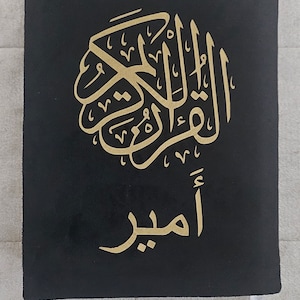 القرآن الكريم
أَمير